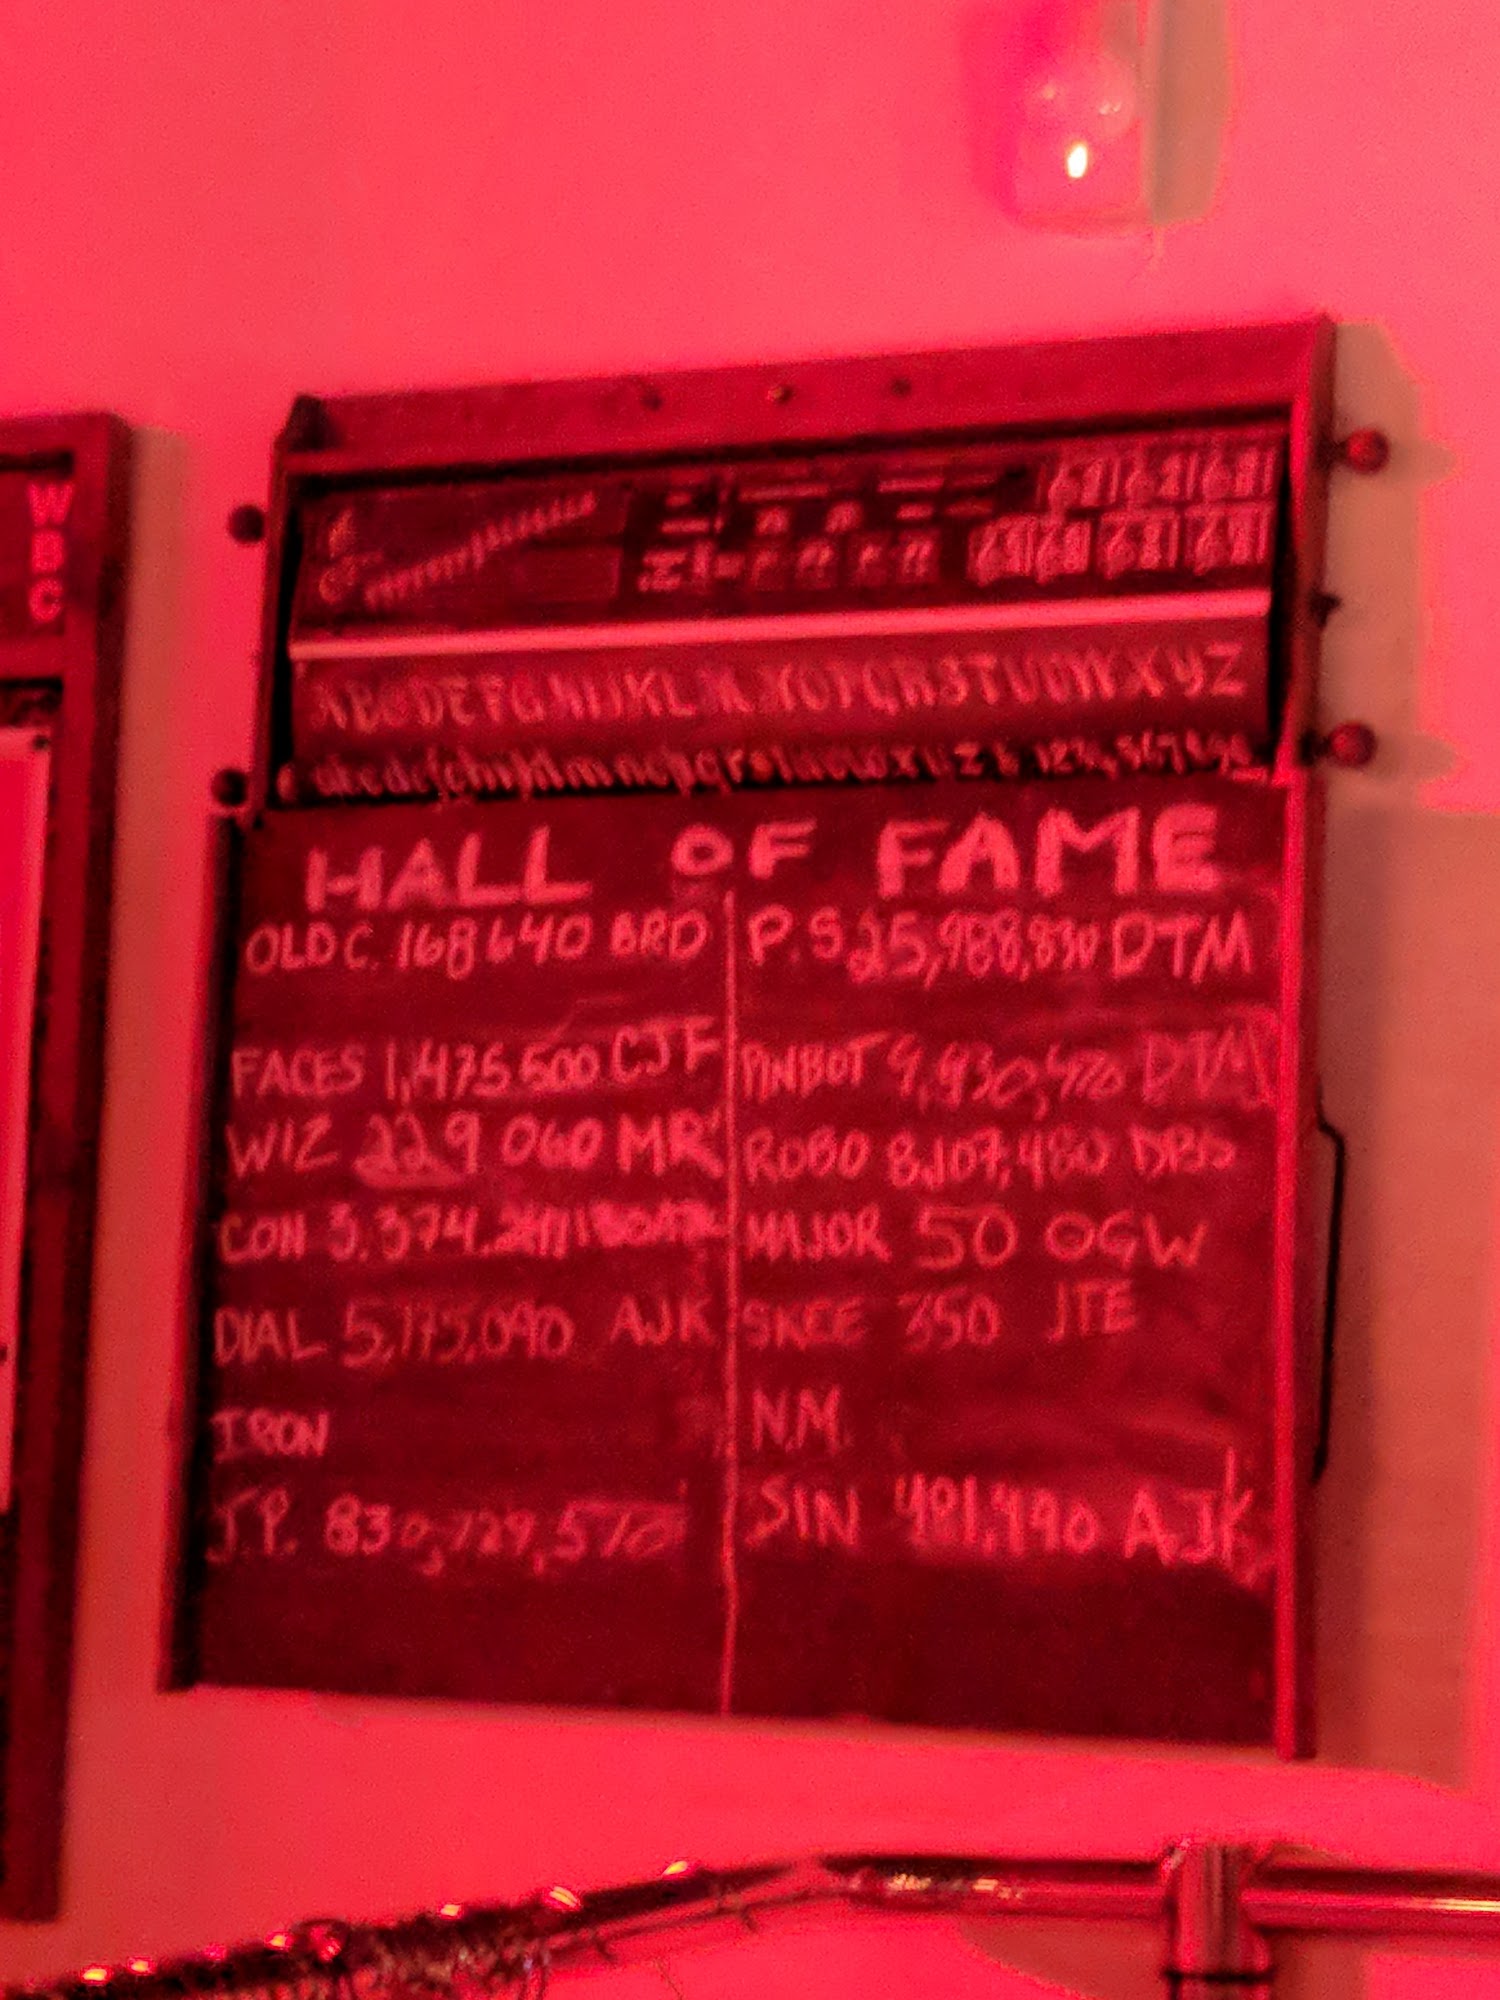 WBC
ABCDEFGHIJKLMNOPQRSTUVWXYZ
HALL OF FAME
OLD C. 168640 BRD
FACES 1,475500 CJF
WIZ 229 060 MR
CON 3,374,
DIAL 5,175,090 AJK
IRON
J.P. 830,729,570
P.S 25,988,830 DTM
PINBOT 9,930,470 DTM
ROBO 8,107,480
MAJOR 50 OGW
SKEE 350 JTE
N.M.
SIN 491,490 AJK